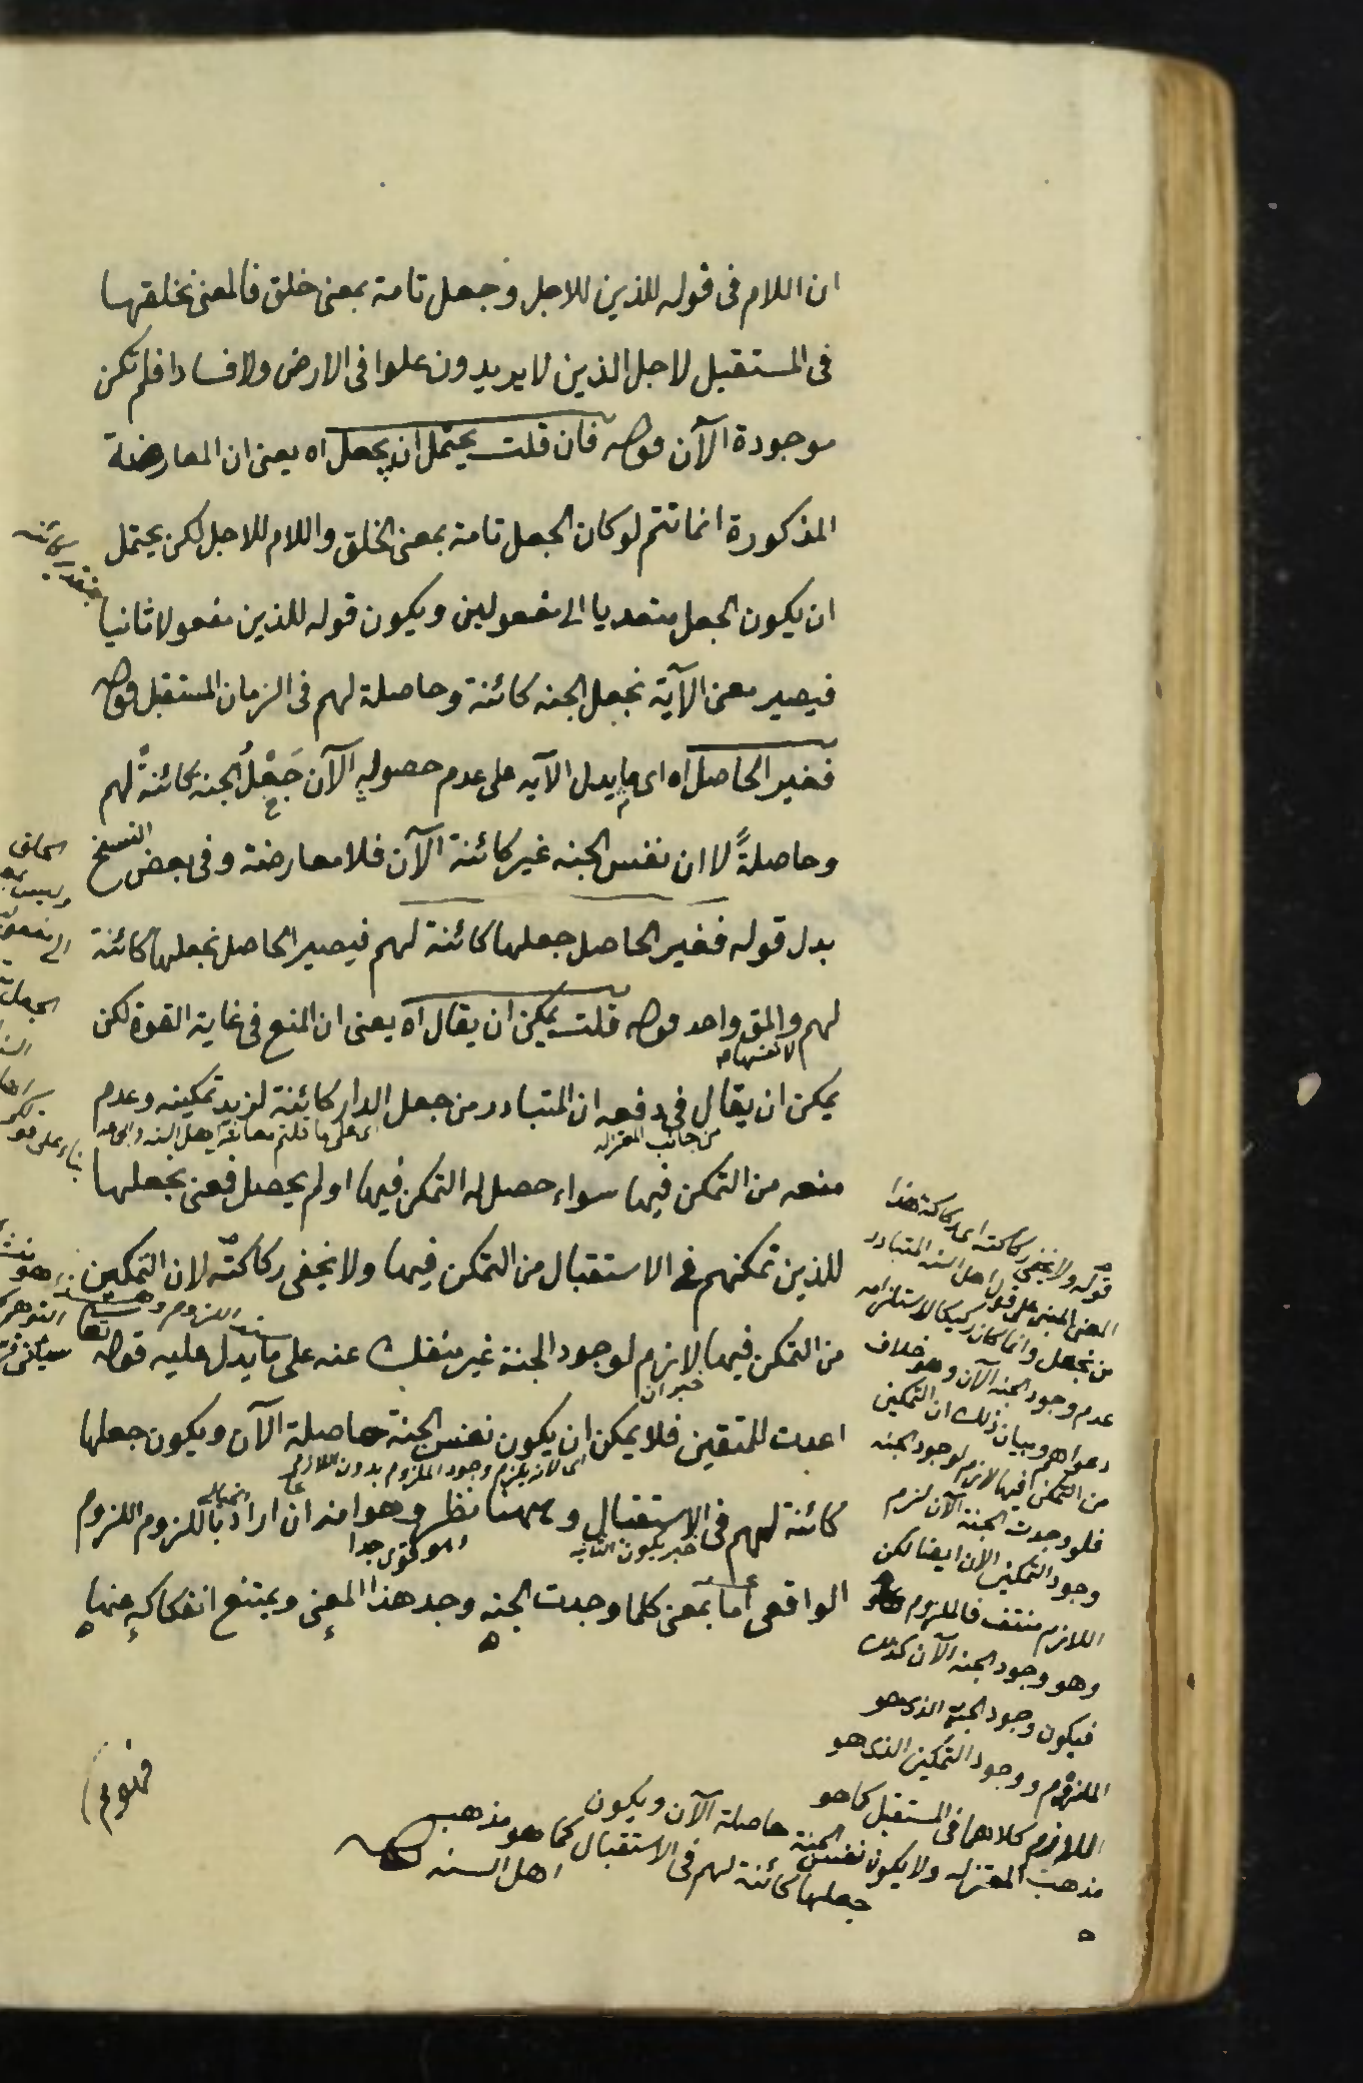 ان اللام فى قوله للذين للاجل وجعل تامة بمعنى خلق فالمعنى نخلقها
فى المستقبل لاجل الذين لا يريدون علوا فى الارض ولا فسادا فلم تكن
موجودة الآن قوله فان قلت يحتمل ان يجعل اه يعنى ان المعارضة
المذكورة انما تتم لو كان الجعل تامة بمعنى الخلق واللام للاجل لكن يحتمل
ان يكون الجعل متعديا الى مفعولين ويكون قوله للذين مفعولا ثانيا
فيصير معنى الآية نجعل الجنه كائنة وحاصلة لهم فى الزمان المستقبل قوله
فغير الحاصل اه اى ما يدل الآيه على عدم حصوله الآن جَعْلُ الجنه كائنةً لهم
وحاصلةً لا ان نفس الجنه غير كائنة الآن فلا معارضة وفى بعض النسخ
بدل قوله فغير الحاصل جعلها كائنة لهم فيصير الحاصل نجعلها كائنة
لهم والمق واحد قوله قلت يمكن ان يقال اه يعنى ان المنع فى غاية القوة لكن
يمكن ان يقال فى دفعه ان المتبادر من جعل الدار كائنة لزيد تمكينه وعدم
من جانب المعتزله
منعه من التمكن فيها سواء حصل له التمكن فيها او لم يحصل فمعنى نجعلها
للذين تمكنهم فى الاستقبال من التمكن فيها ولا يخفى ركاكته لان التمكين
من التمكن فيها لازم لوجود الجنة غير منفك عنه على ما يدل عليه قوله تعا
خبر ان
اعدت للمتقين فلا يمكن ان يكون نفس الجنة حاصلة الآن ويكون جعلها
اى لانه يلزم وجود الملزوم بدون اللازم
كائنة لهم فى الاستقبال وههنا نظر وهو انه ان اراد باللزوم اللزوم
خبر يكون الثانيه
الواقعى اما بمعنى كلما وجدت الجنه وجد هذا المعنى ويمتنع انفكاكه عنها
قوله ولا يخفى ركاكته اى ركاكة هذا
المعنى المبنى على قول اهل السنه المتبادر
من نجعل وانما كان ركيكا لاستلزامه
عدم وجود الجنه الآن وهو خلاف
دعواهم وبيان ذلك ان التمكين
من التمكن فيها لازم لوجود الجنه
فلو وجدت الجنة الآن لزم
وجود التمكين الآن ايضا لكن
اللازم منتف فالملزوم
وهو وجود الجنه الآن كذلك
فيكون وجود الجنة الذى هو
الملزوم ووجود التمكين الذى هو
اللازم كلاهما فى المستقبل كما هو
مذهب المعتزله ولا يكون نفس الجنة حاصلة الآن ويكون
جعلها كائنة لهم فى الاستقبال كما هو مذهب
اهل السنه